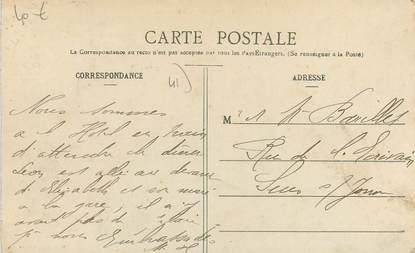 40 €
CARTE POSTALE
La Correspondance au recto n'est pas acceptée par tous les Pays Étrangers. (Se renseigner à la Poste)
CORRESPONDANCE
41)
ADRESSE
Nous sommes
à l'Hôtel en train
d'attendre le dîner
Léon est allé au devant
d'Elizabeth et son mari
à la gare, il n'y
avait pas de
pr nous Embrassades
M
Rue de
Sens s/Yonne